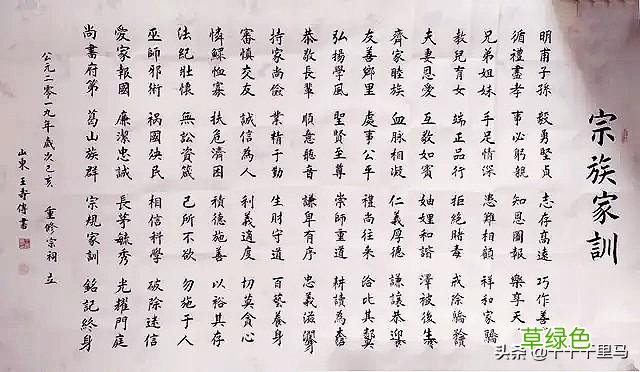 宗族家訓
明甫子孫 毅勇堅貞 志存高遠 巧作善
循禮盡孝 事必躬親 知恩圖報 樂享天
兄弟姐妹 手足情深 患難相顧 祥和家
教兒育女 端正品行 拒絕賭毒 戒除驕
夫妻恩愛 互敬如賓 妯娌和諧 澤被後生
齊家睦族 血脉相凝 仁義厚德 謙讓恭迎
友善鄉里 處事公平 禮尚往來 洽比其鄰
弘揚學風 聖賢至尊 崇師重道 耕讀為本
恭敬長輩 順意聽音 謙卑有序 忠義滋潤
持家尚儉 業精于勤 生財守道 百藝養身
審慎交友 誠信為人 利義適度 切莫貪心
憐鰥恤寡 扶危濟困 積德施善 以裕其存
法紀壯懷 無訟資箴 己所不欲 勿施于人
巫師邪術 禍國殃民 相信科學 破除迷信
愛家報國 廉潔忠誠 長茅毓秀 光耀門庭
尚書府第 山族群 宗規家訓 銘記終身
公元二零一九年歲次己亥 重修宗祠 立
山東王壽傳書
草绿色
头条 @千千千里马